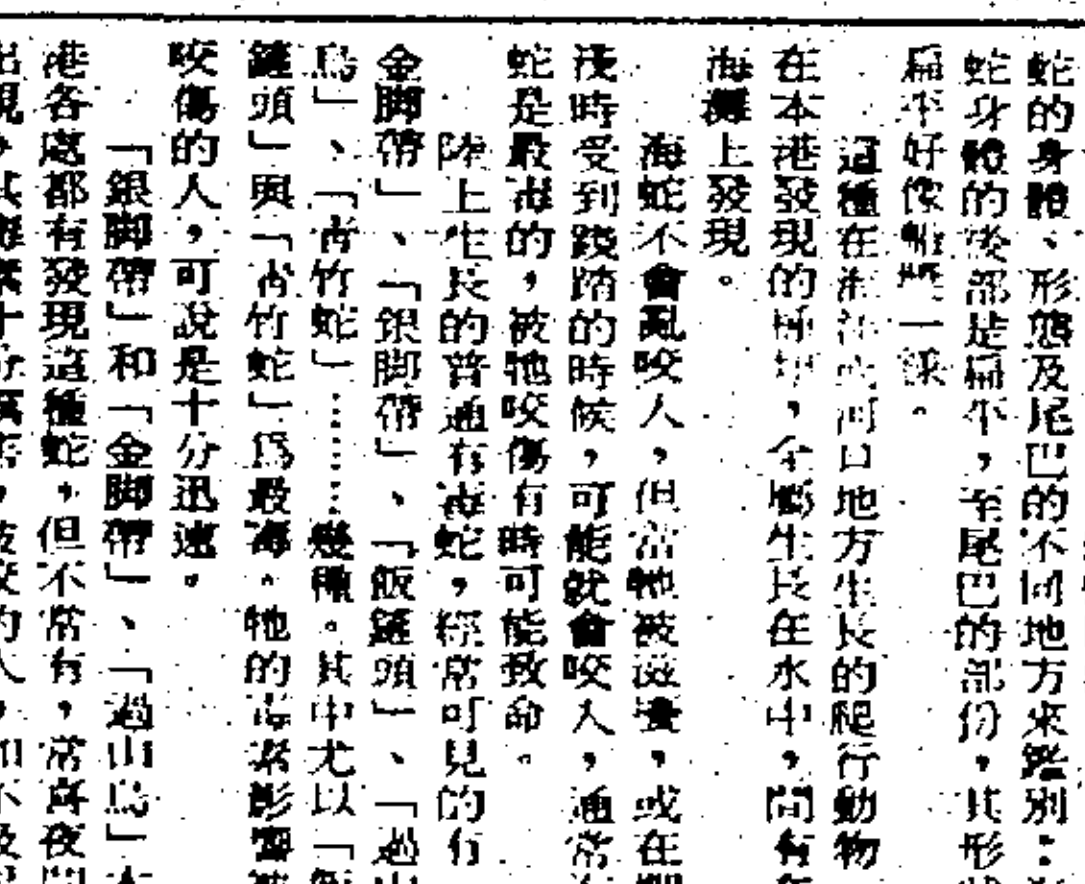 蛇的身體、形態及尾巴的不同地方來鑑別：
蛇身體的後部是扁平，至尾巴的部份，其形
扁平好像一樣。
這種在海河口地方生長的爬行動物
在本港發現的種，全屬生長在水中，間有
海灘上發現。
海蛇不會亂咬人，但當牠被滋擾，或在
淺時受到踐踏的時候，可能就會咬人，通常
蛇是最毒的，被牠咬傷有時可能致命。
陸上生長的普通有毒蛇，經常可見的有
金脚帶」、「銀脚帶」、「飯鏟頭」、「過山
烏」、「青竹蛇」……幾種。其中尤以「飯
鏟頭」與「青竹蛇」爲最毒。牠的毒素影響被
咬傷的人，可說是十分迅速。
「銀脚帶」和「金脚帶」、「過山烏」本
港各處都有發現這種蛇，但不常有，常喜夜間
出現，其毒素十分厲害，被咬的人，如不及